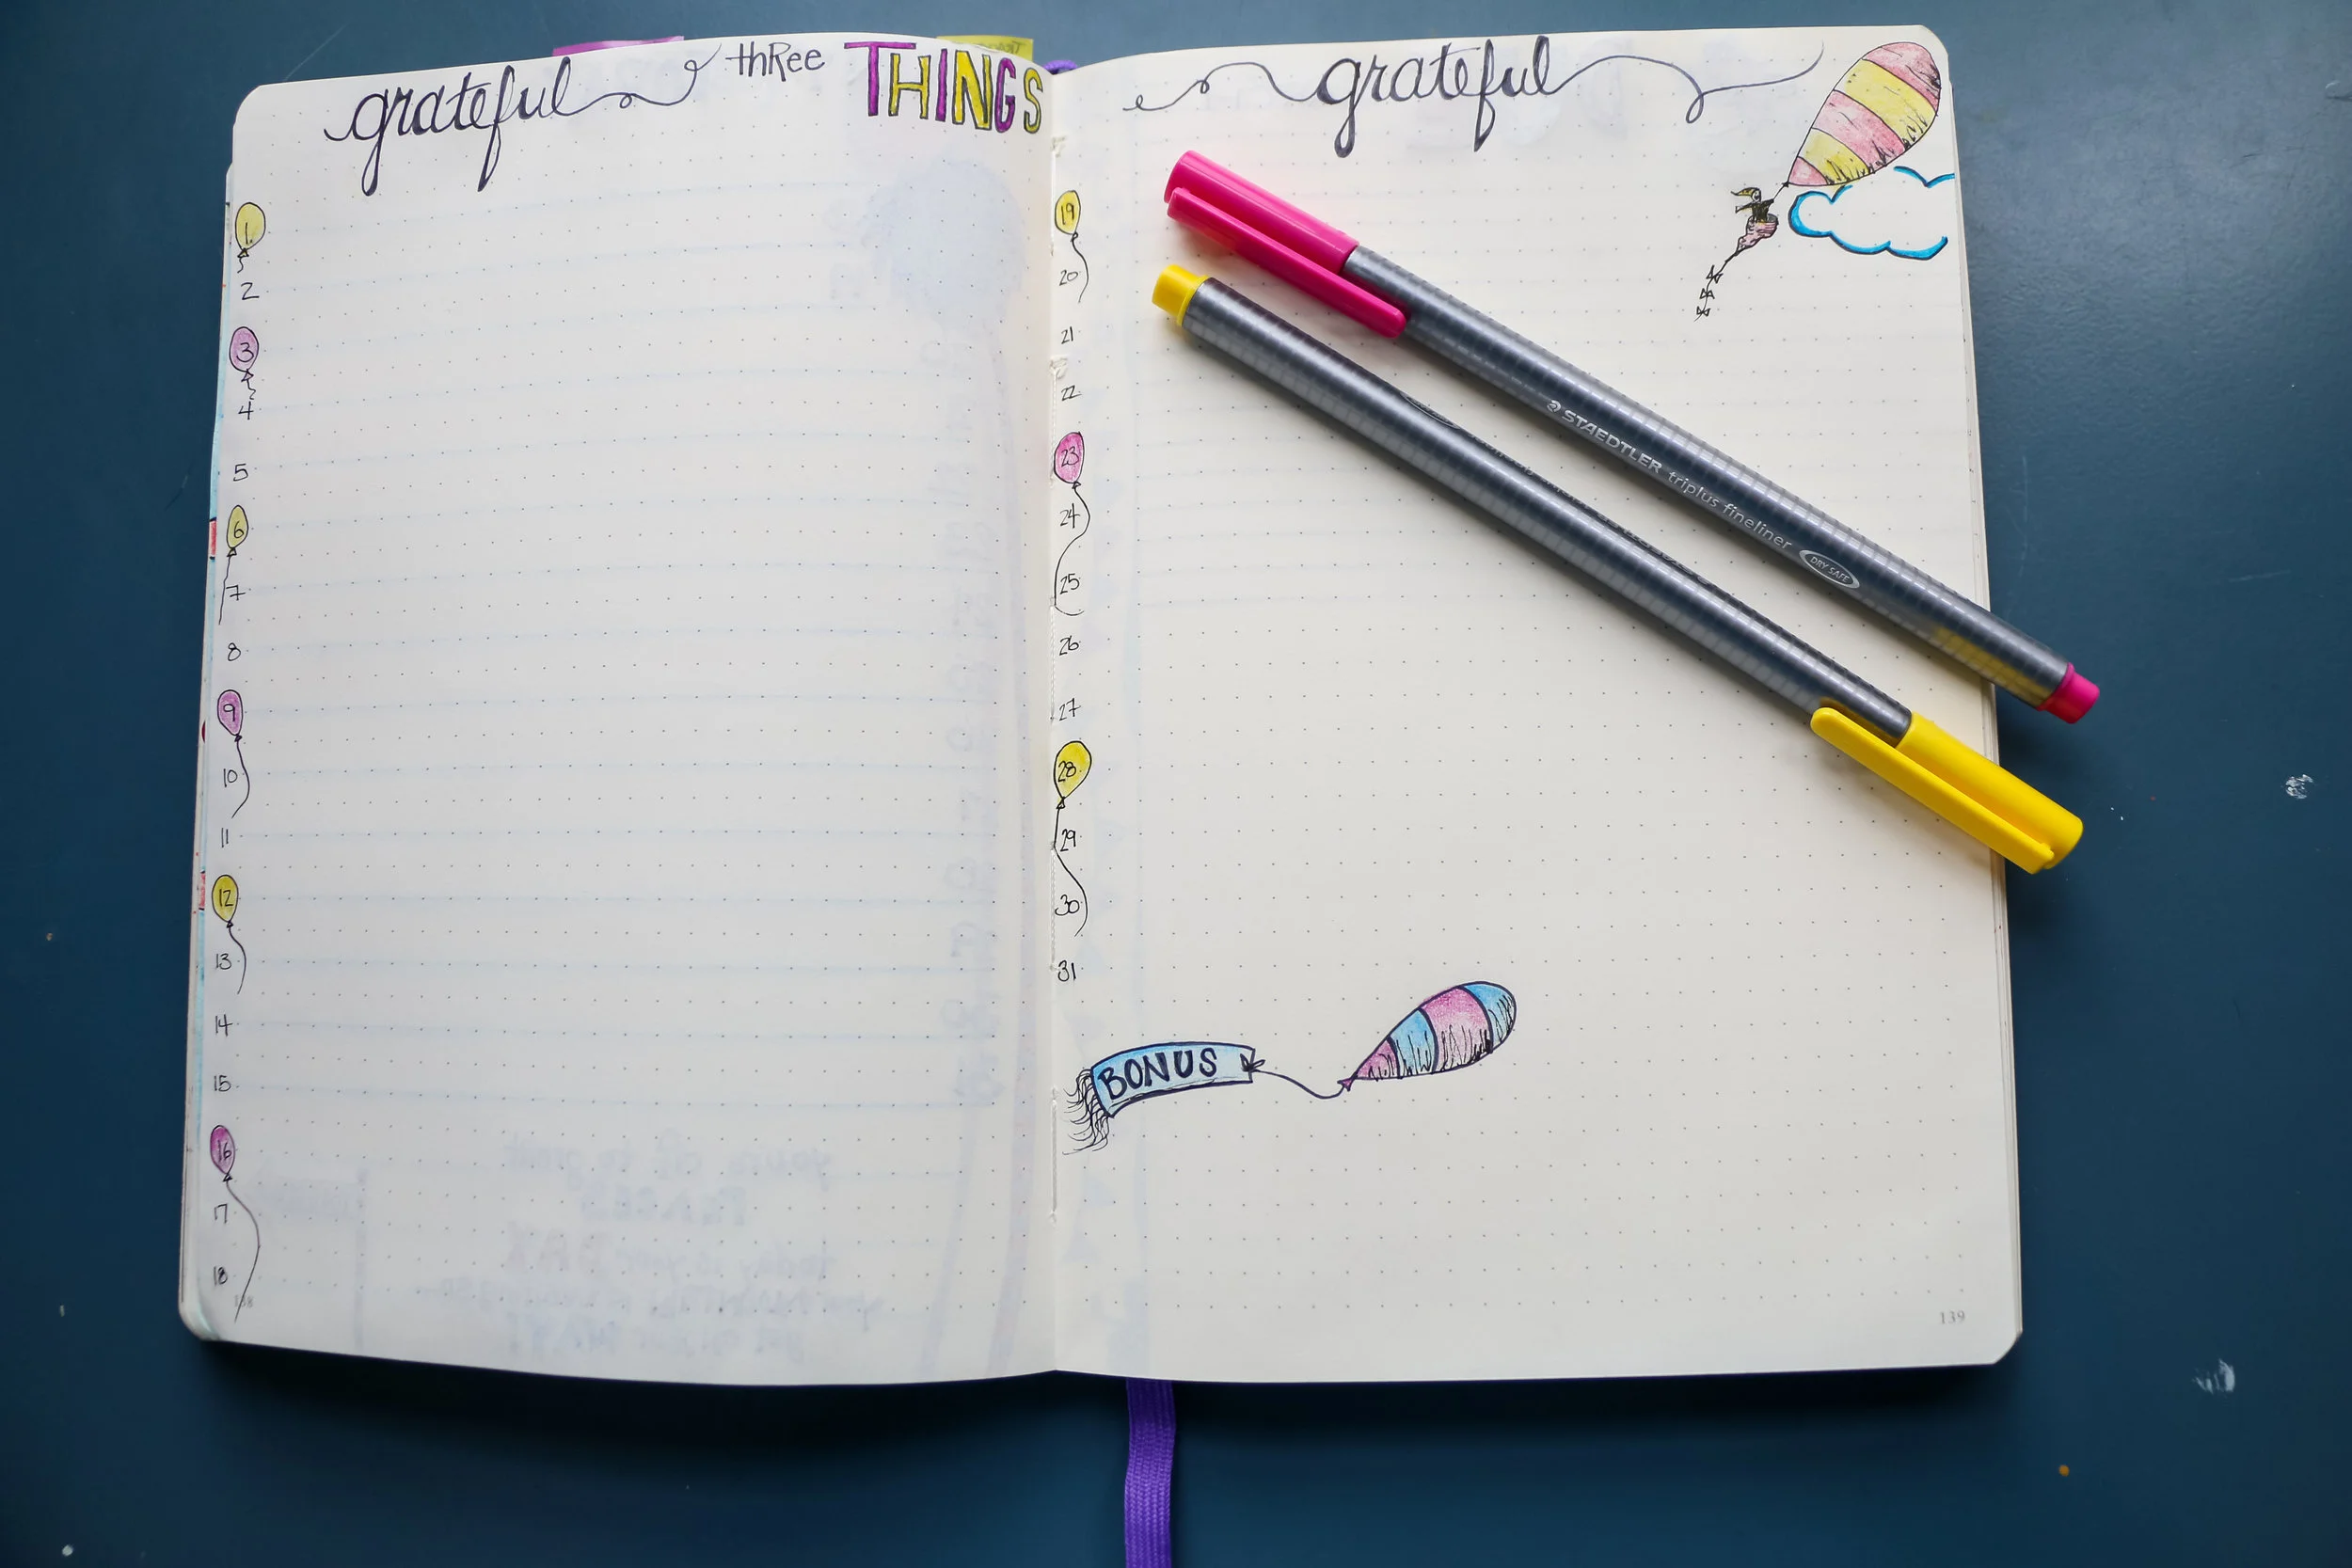 grateful three THINGS
1
2
3
4
5
6
7
8
9
10
11
12
13
14
15
16
17
18
138
grateful
19
20
21
22
23
24
25
26
27
28
29
30
31
BONUS
139
STAEDTLER triplus fineliner DRY SAFE